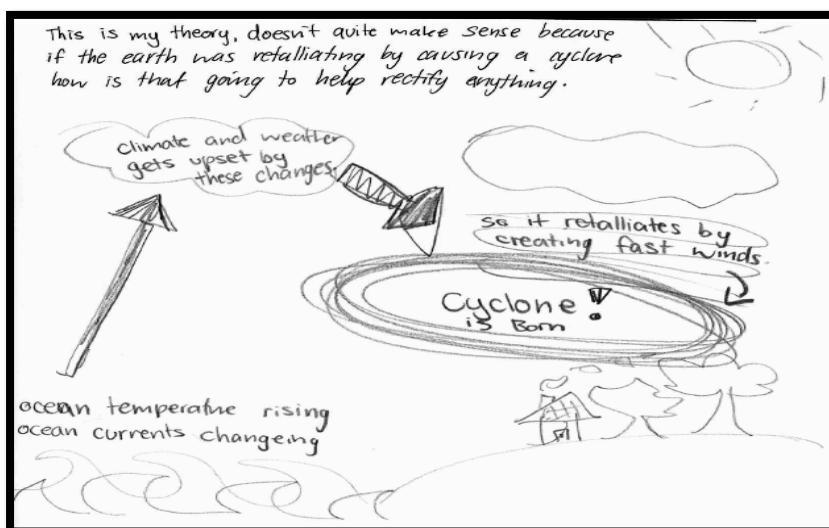 This is my theory, doesn't quite make sense because
if the earth was retalliating by causing a cyclone
how is that going to help rectify anything.
climate and weather
gets upset by
these changes.
so it retalliates by
creating fast winds.
Cyclone !
is Born
ocean temperature rising
ocean currents changeing